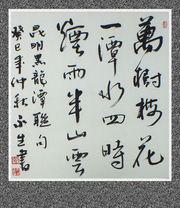 萬樹梅花
一潭水四時
煙雨半山雲
昆明黑龍潭聯句
癸巳年仲秋
生書